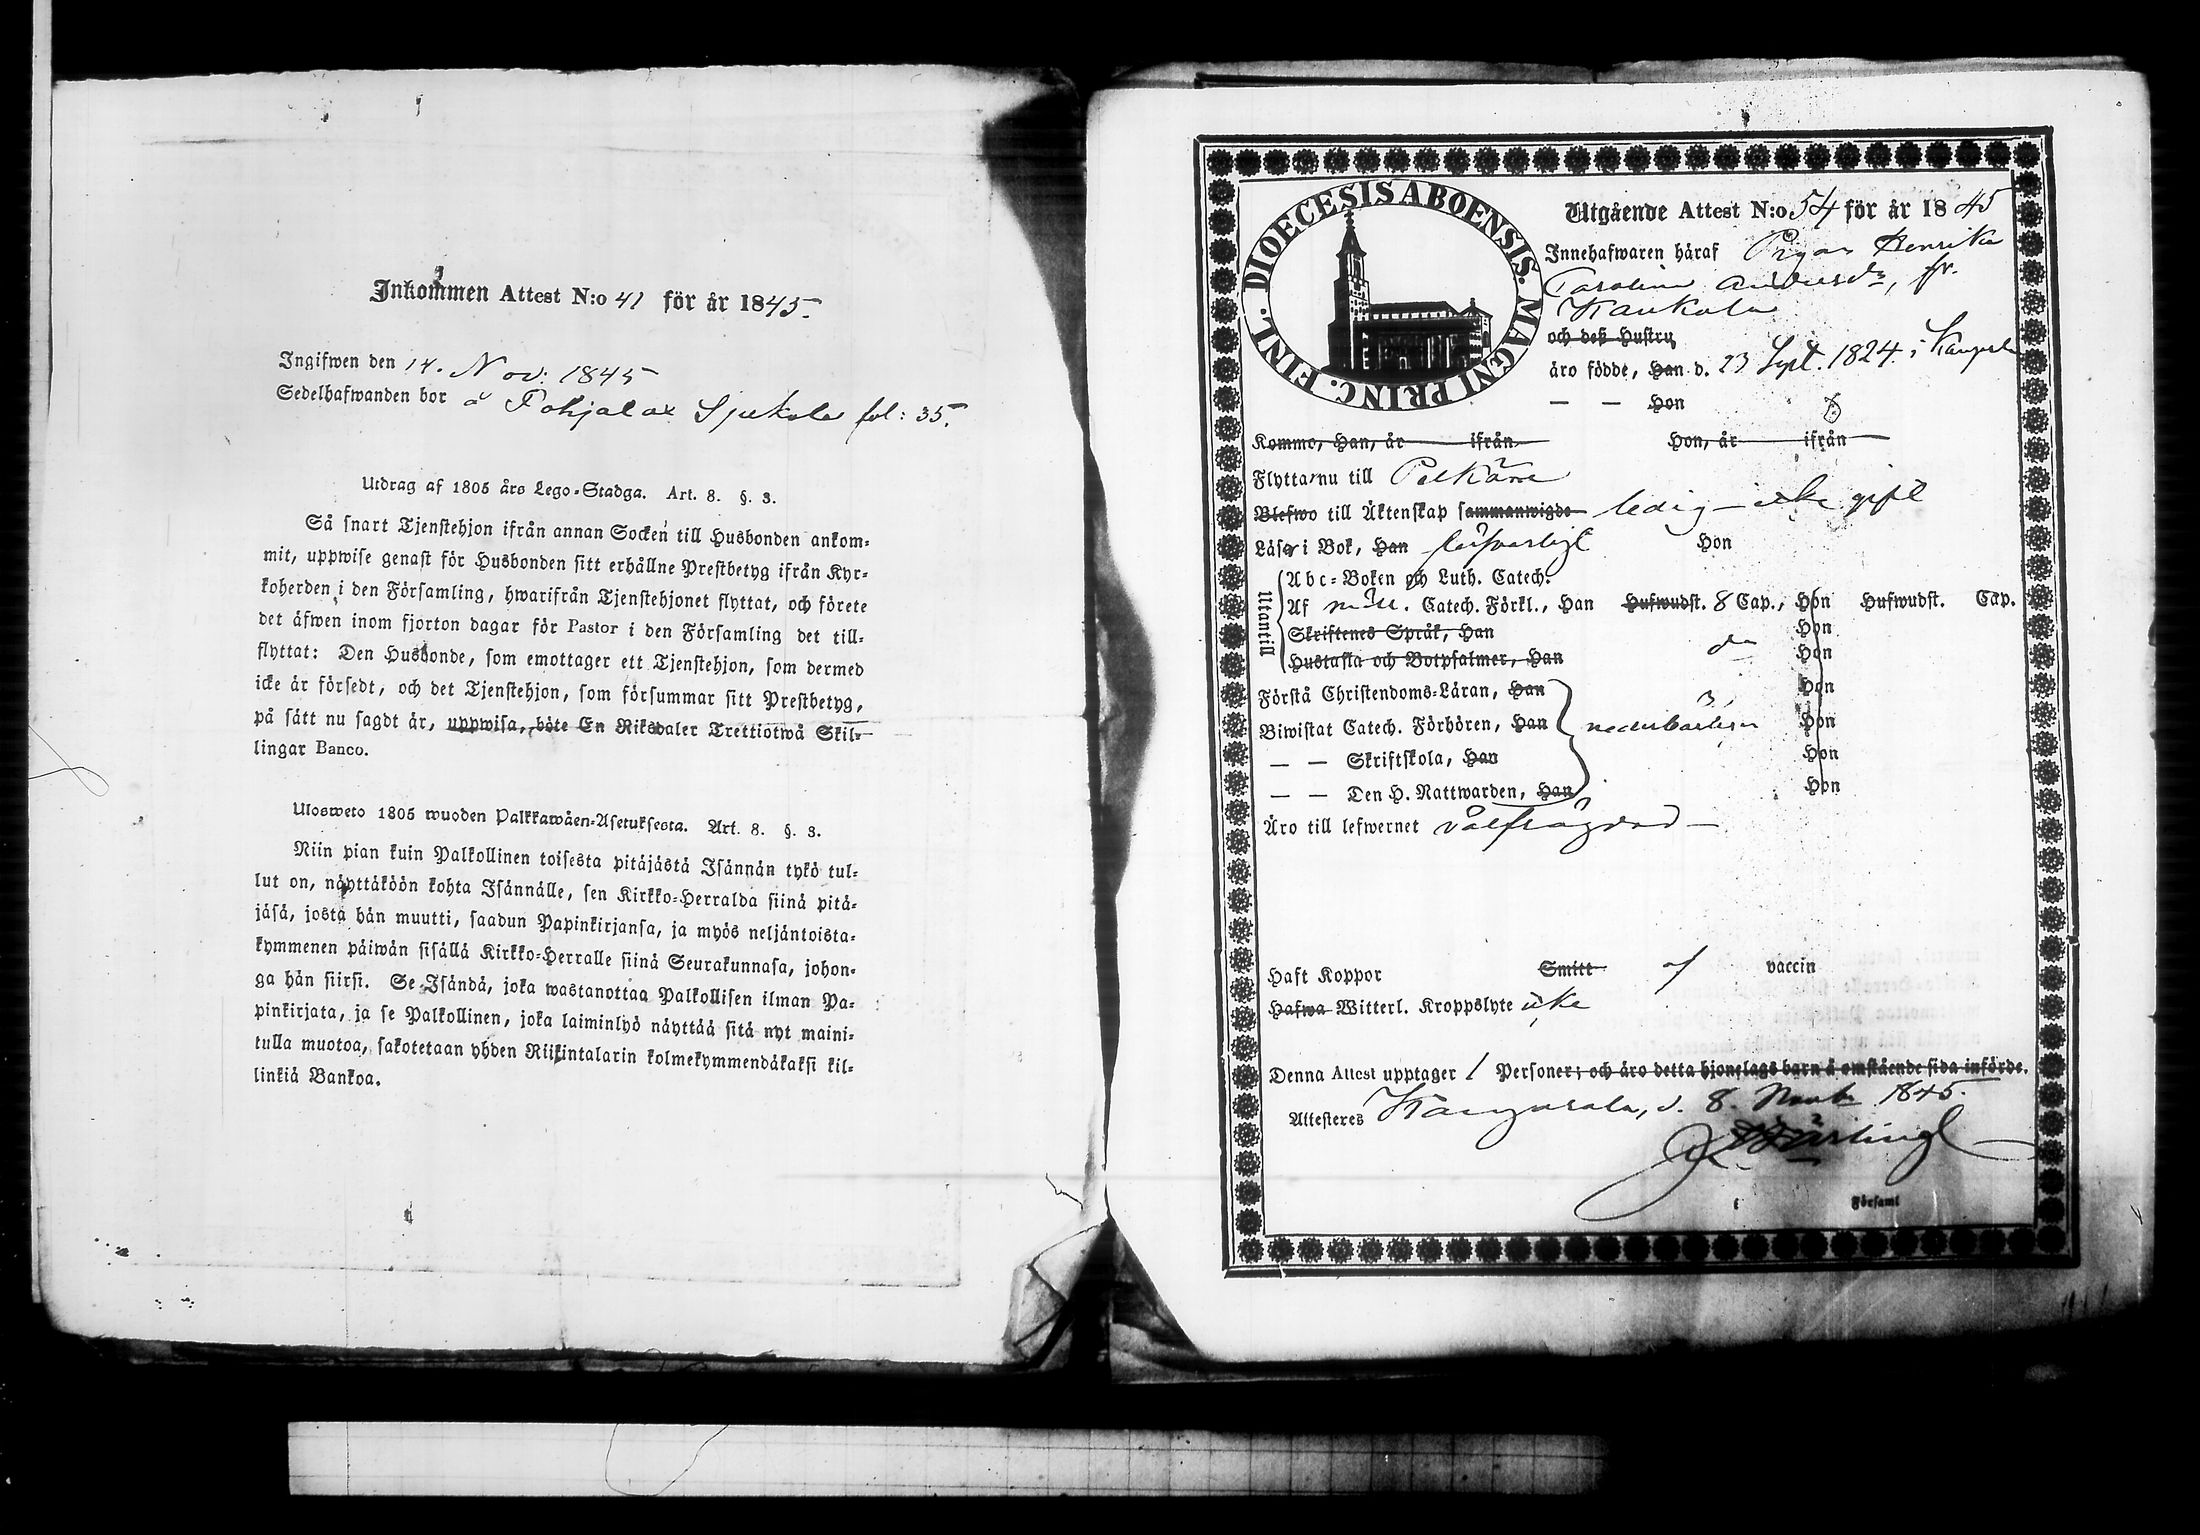 Inkommen Attest N:o 41 för år 1845.
Ingifwen den 14. Nov: 1845
Sedelhafwanden bor å Pohjalax Sjukola fol: 35.
Utdrag af 1805 års Lego-Stadga. Art. 8. §. 3.
Så snart Tjenstehjon ifrån annan Socken till Husbonden ankom-
mit, uppwise genast för Husbonden sitt erhållne Prestbetyg ifrån Kyr-
koherden i den Församling, hwarifrån Tjenstehjonet flyttat, och förete
det äfwen inom fjorton dagar för Pastor i den Församling det till-
flyttat: Den Husbonde, som emottager ett Tjenstehjon, som dermed
icke är försedt, och det Tjenstehjon, som försummar sitt Prestbetyg,
på sätt nu sagdt är, uppwisa, böte En Riksdaler Trettiotwå Skil-
lingar Banco.
Ulosweto 1805 wuoden Palkkawäen-Asetuksesta. Art. 8. §. 3.
Niin pian kuin Palkollinen toisesta pitäjästä Isännän tykö tul-
lut on, näyttäköön kohta Isännälle, sen Kirkko-Herralda siinä pitä-
jäsä, josta hän muutti, saadun Papinkirjansa, ja myös neljäntoista-
kymmenen päiwän sisällä Kirkko-Herralle siinä Seurakunnasa, johon-
ga hän siirsi. Se Isändä, joka wastanottaa Palkollisen ilman Pa-
pinkirjata, ja se Palkollinen, joka laiminlyö näyttää sitä nyt maini-
tulla muotoa, sakotetaan yhden Riikintalarin kolmekymmendäkaksi kil-
linkiä Bankoa.
DIOECESIS ABOENSIS. MAGNI PRINC. FINL.
Utgående Attest N:o 54 för år 1845
Innehafwaren häraf Pigan Henrika
Carolina Andersdr, fr.
Kaukola
och deß Hustru
äro födde, Han d. 23 Sept. 1824 i Kangasala
— — Hon
Kommo, Han, år ifrån Hon, år ifrån
Flytta nu till Pelkäne
Blefwo till Äktenskap sammanwigde ledig – icke gift
Läsa i Bok, Han försvarligt Hon
Utantill
Abc-Boken och Luth. Catech.
Af Catech. Förkl., Han Hufwudst. 8 Cap., Hon Hufwudst. Cap.
Skriftenes Språk, Han Hon
Hustafla och Botpsalmer, Han Hon
Förstå Christendoms-Läran, Han Hon
Biwistat Catech. Förhören, Han Hon
— — Skriftskola, Han Hon
— — Den H. Nattwarden, Han Hon
Äro till lefwernet välfrägdad –
Haft Koppor Smitt af vaccin
Hafwa Witterl. Kroppslyte icke
Denna Attest upptager 1 Personer; och äro detta hjonelags barn å omstående sida införde.
Attesteres Kangasala, d. 8. Novbr 1845.
i Församl